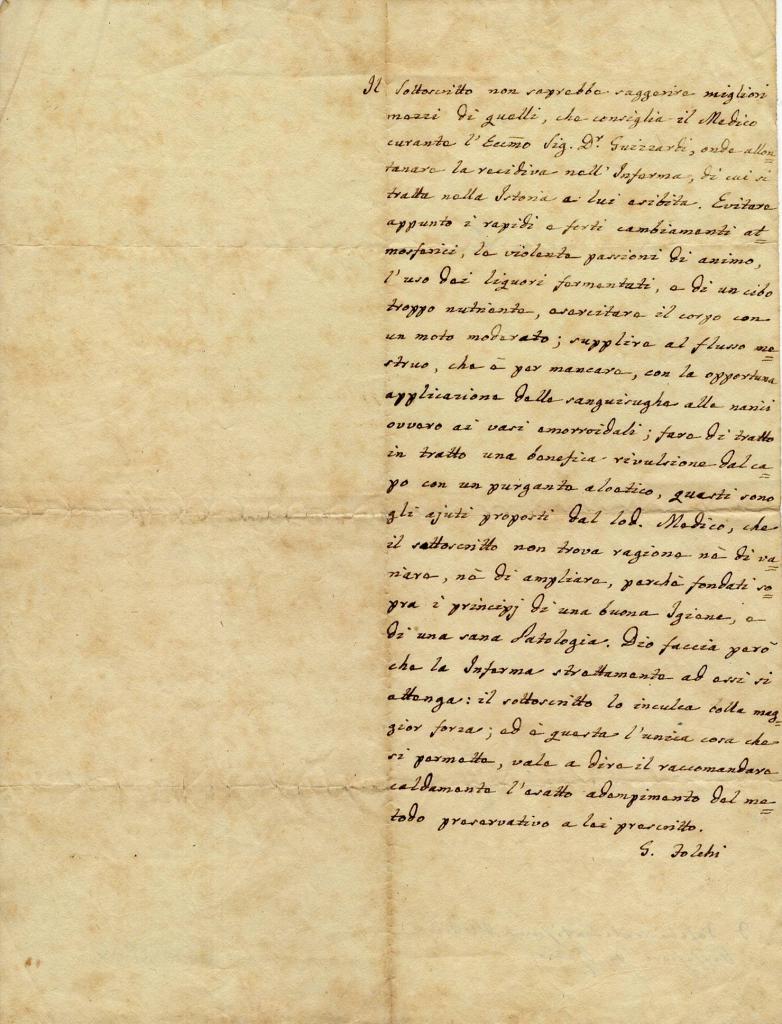 Il Sottoscritto non saprebbe suggerire migliori
mezzi di quelli, che consiglia il Medico
curante l'Eccmo Sig. Dr. Guizzardi, onde allon=
tanare la recidiva nell'Inferma, di cui si
tratta nella Istoria a lui esibita. Evitare
appunto i rapidi e forti cambiamenti at=
mosferici, le violente passioni di animo,
l'uso dei liquori fermentati, e di un cibo
troppo nutriente, esercitare il corpo con
un moto moderato; supplire al flusso me=
struo, che è per mancare, con la opportuna
applicazione delle sanguisughe alle narici
ovvero ai vasi emorroidali; fare di tratto
in tratto una benefica rivulsione dal ca=
po con un purgante aloetico, questi sono
gli ajuti proposti dal lod. Medico, che
il sottoscritto non trova ragione nè di va=
riare, nè di ampliare, perchè fondati so=
pra i principj di una buona Igiene, e
di una sana Patologia. Dio faccia però
che la Inferma strettamente ad essi si
attenga: il sottoscritto lo inculca colla mag=
gior forza; ed è questa l'unica cosa che
si permette, vale a dire il raccomandare
caldamente l'esatto adempimento del me=
todo preservativo a lei prescritto.
G. Folchi